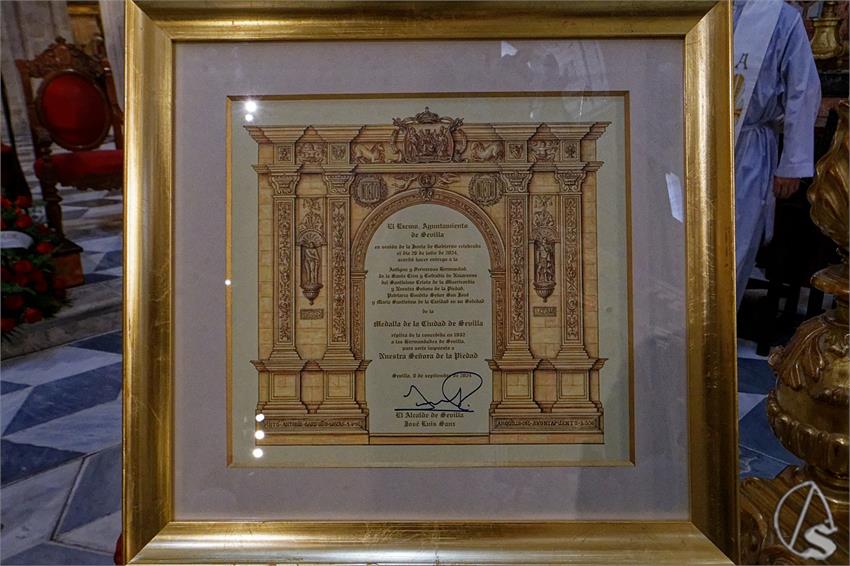 El Excmo. Ayuntamiento
de Sevilla
en sesión de la Junta de Gobierno celebrada
el día 26 de julio de 2024,
acordó hacer entrega a la
Antigua y Fervorosa Hermandad
de la Santa Cruz y Cofradía de Nazarenos
del Santísimo Cristo de la Misericordia
y Nuestra Señora de la Piedad,
Patriarca Bendito Señor San José
y María Santísima de la Caridad en su Soledad
de la
Medalla de la Ciudad de Sevilla
réplica de la concedida en
a las Hermandades de Sevilla,
para serle impuesta a
Nuestra Señora de la Piedad
Sevilla, 8 de septiembre de 2024
El Alcalde de Sevilla
José Luis Sanz
ARQUILLO DEL AYUNTAMIENTO